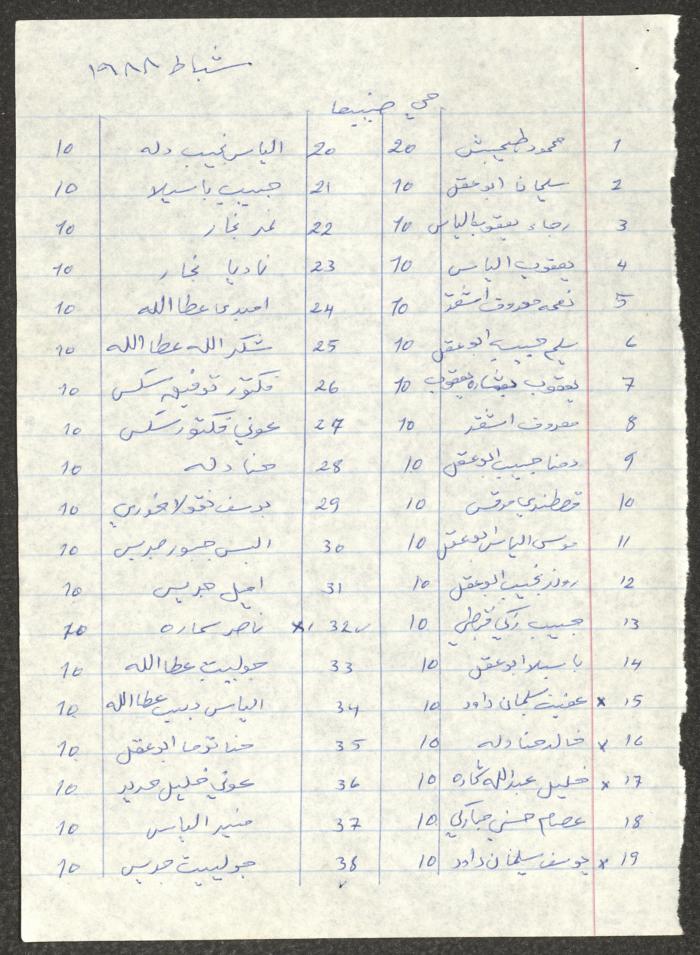 شباط ١٩٨٨
حي
1 محمود 20
2 سلمان ابو عقل 10
3 رجاء يعقوب الياس 10
4 يعقوب الياس 10
5 نعمه معروف اشقر 10
6 سليم حبيب ابو عقل 10
7 يعقوب بشاره يعقوب 10
8 معروف اشقر 10
9 حنا حبيب ابو عقل 10
10 قسطندي مرقس 10
11 موسى الياس ابو عقل 10
12 روز نجيب ابو عقل 10
13 حبيب زكي قبطي 10
14 باسيلا ابو عقل 10
15 x عفيف سلمان داود 10
16 x خالد حنا دله 10
17 x خليل عبدالله 10
18 عصام حسني 10
19 x يوسف سليمان داود 10
20 الياس نجيب دله 10
21 حبيب باسيلا 10
22 نمر نجار 10
23 ناديا نجار 10
24 عطاالله 10
25 شكرالله عطاالله 10
26 فكتور توفيق سكس 10
27 عوني فكتور سكس 10
28 حنا دله 10
29 يوسف نقولا خوري 10
30 جريس 10
31 اميل جريس 10
32 x ناصر سماره 10
33 جولييت عطاالله 10
34 الياس ديب عطاالله 10
35 حنا توما ابو عقل 10
36 عوني خليل حديد 10
37 منير الياس 10
38 جولييت جريس 10